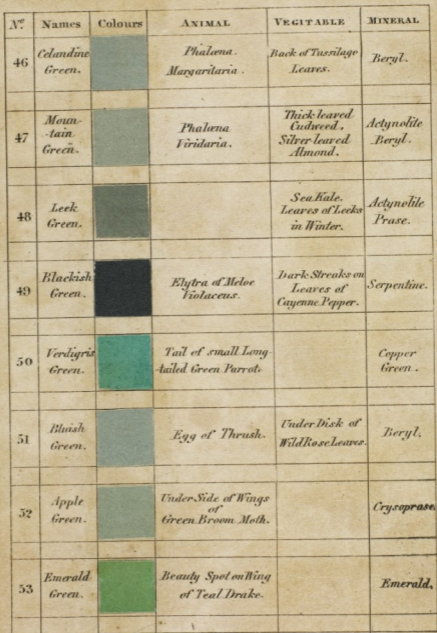 No. Names Colours ANIMAL VEGITABLE MINERAL
46 Celandine Green. Phalæna. Margaritaria. Back of Tussilage Leaves. Beryl.
47 Moun-tain Green. Phalæna Viridaria. Thick leaved Cudweed. Silver leaved Almond. Actynolite Beryl.
48 Leek Green. Sea Kale. Leaves of Leeks in Winter. Actynolite Prase.
49 Blackish Green. Elytra of Meloe Violaceus. Dark Streaks on Leaves of Cayenne Pepper. Serpentine.
50 Verdigris Green. Tail of small Long-tailed Green Parrot. Copper Green.
51 Bluish Green. Egg of Thrush. Under Disk of Wild Rose Leaves. Beryl.
52 Apple Green. Under Side of Wings of Green Broom Moth. Crysoprase.
53 Emerald Green. Beauty Spot on Wing of Teal Drake. Emerald.